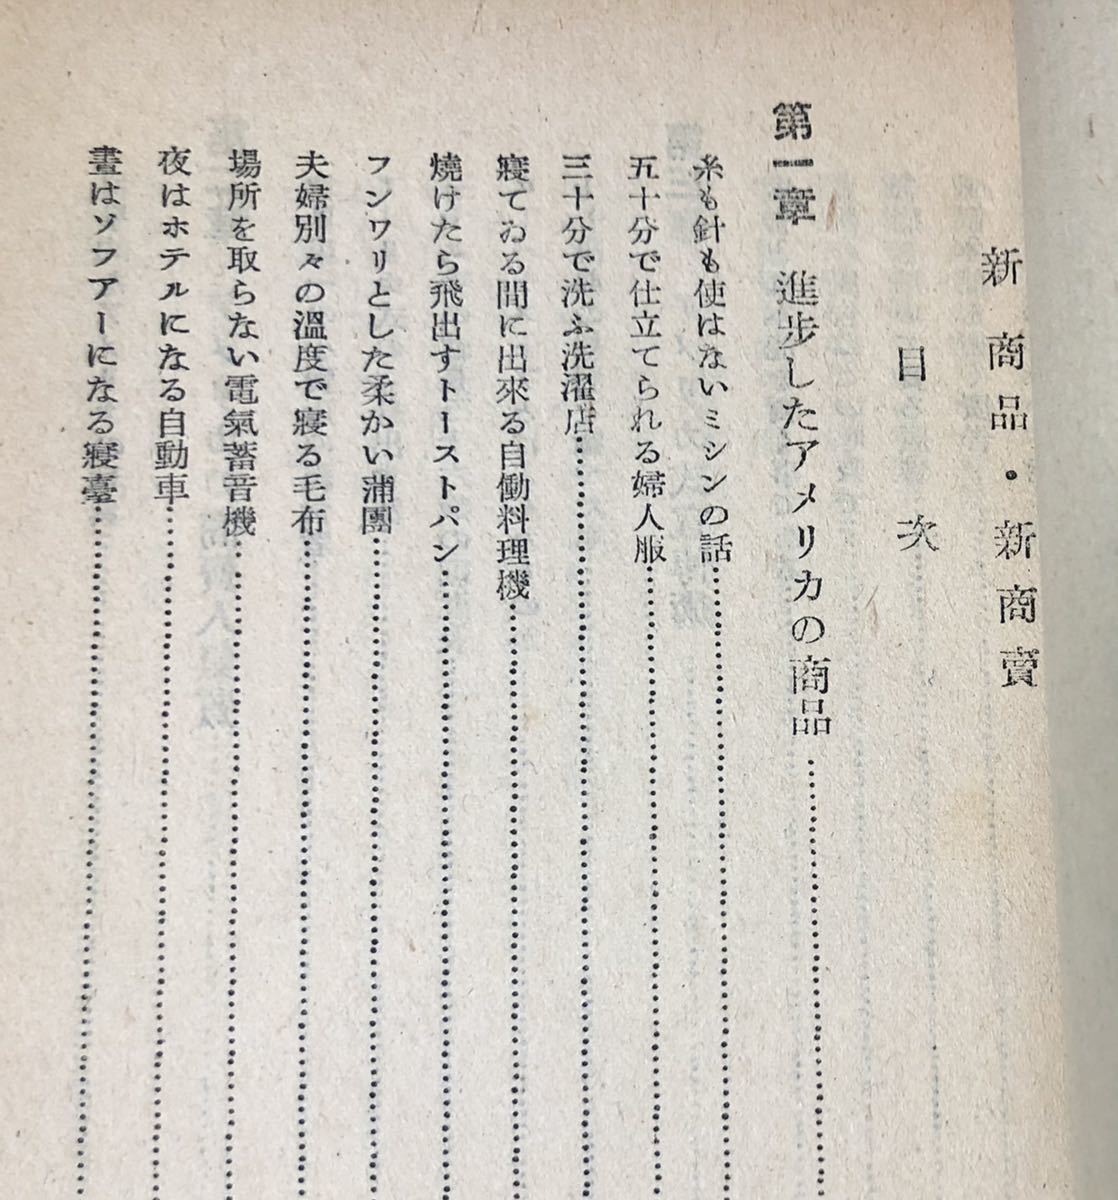 新商品・新商賣
目次
第一章 進步したアメリカの商品
糸も針も使はないミシンの話
五十分で仕立てられる婦人服
三十分で洗ふ洗濯店
寢てゐる間に出來る自働料理機
燒けたら飛出すトーストパン
フンワリとした柔かい蒲團
夫婦別々の溫度で寢る毛布
場所を取らない電氣蓄音機
夜はホテルになる自動車
晝はソフアーになる寢臺